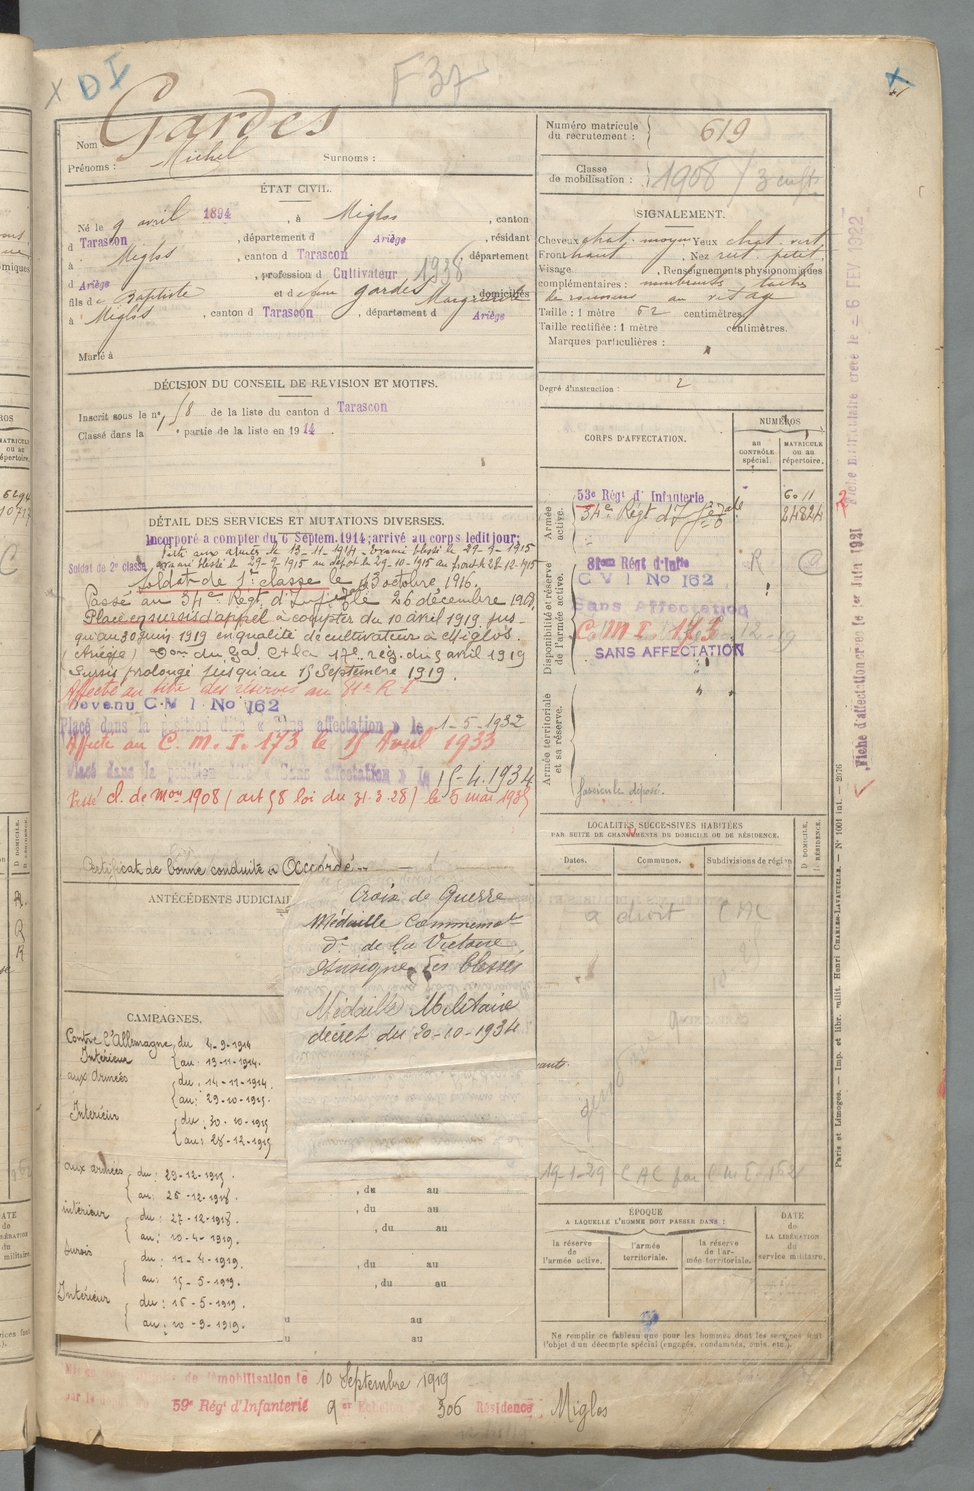 X DI F37 X
Nom Gardes
Prénoms : Michel Surnoms :
Numéro matricule du recrutement : 619
Classe de mobilisation : 1908 / 3 enfts
ÉTAT CIVIL.
Né le 9 avril 1894, à Miglos, canton
d Tarascon, département d Ariège, résidant
à Miglos, canton d Tarascon, département
d Ariège, profession d Cultivateur 1938
fils de Baptiste et de feue Gardes Marguerite domiciliés
à Miglos, canton d Tarascon, département d Ariège
Marié à
SIGNALEMENT.
Cheveux chat. moyen Yeux chat. vert
Front haut, Nez rect. petit.
Visage, Renseignements physionomiques
complémentaires : nombreuses taches
de rousseurs au visage
Taille : 1 mètre 62 centimètres.
Taille rectifiée : 1 mètre centimètres.
Marques particulières :
Degré d'instruction : 2
DÉCISION DU CONSEIL DE REVISION ET MOTIFS.
Inscrit sous le n° 58 de la liste du canton d Tarascon
Classé dans la 1 e partie de la liste en 1914
DÉTAIL DES SERVICES ET MUTATIONS DIVERSES.
Incorporé a compter du 6 Septem. 1914; arrivé au corps ledit jour;
Soldat de 2e classe
Parti aux armées le 13-11-1914. Evacué blessé le 29-9-1915
au dépôt le 29-10-1915 au front le 28-12-1915
Soldat de 1re classe le 13 octobre 1916.
Passé au 34e Régt. d'Infie le 26 décembre 1918.
Placé en sursis d'appel à compter du 10 avril 1919 jus-
qu'au 30 juin 1919 en qualité de cultivateur à Miglos.
(Ariège) Don du Gal Ct la 17e rég. du 5 avril 1919
Sursis prolongé jusqu'au 15 Septembre 1919.
Affecté au titre des réserves au 81e R.I
Devenu C M I No 162
Placé dans la position dite « Sans affectation » le 1-5-1932
Affecté au C. M. I. 173 le 15 Avril 1933
Placé dans la position dite « Sans affectation » le 15-4-1934
Passé cl. de mon 1908 (art 58 loi du 31.3.28) le 5 mai 1935
Certificat de bonne conduite « Accordé »
CORPS D'AFFECTATION.
NUMÉROS
au CONTRÔLE spécial.
MATRICULE ou au répertoire.
Armée active.
53e Régt d'Infanterie 6011
34e Régt d'Infie 24824
Disponibilité et réserve de l'armée active.
81eme Régt d'Infie R
C V I No 162
Sans Affectation
C. M. I. 173
SANS AFFECTATION
Armée territoriale et sa réserve.
fascicule déposé.
ANTÉCÉDENTS JUDICIAI
Croix de Guerre
Médaille Commémot
de la Victoire
Insigne des blessés
Médaille Militaire
décret du 20-10-1934
LOCALITÉS SUCCESSIVES HABITÉES
PAR SUITE DE CHANGEMENTS DE DOMICILE OU DE RÉSIDENCE.
Dates. Communes. Subdivisions de région
D. DOMICILE.
R. RÉSIDENCE.
a droit CAC
19-1-29 CAC par C M I 162
CAMPAGNES.
Contre l'Allemagne, du 4-9-1914
Intérieur au : 13-11-1914.
aux Armées du : 14-11-1914.
au : 29-10-1915.
Intérieur du : 30-10-1915
au : 28-12-1915
aux armées du : 29-12-1915.
au : 26-12-1918.
intérieur du : 27-12-1918.
au : 10-4-1919.
Sursis du : 11-4-1919.
au : 15-5-1919.
Intérieur du : 16-5-1919.
au : 10-9-1919.
, du au
, du au
, du au
, du au
, du au
au
au
ÉPOQUE
A LAQUELLE L'HOMME DOIT PASSER DANS :
la réserve de l'armée active.
l'armée territoriale.
la réserve de l'armée territoriale.
DATE de LA LIBÉRATION du service militaire.
Ne remplir ce tableau que pour les hommes dont les services font
l'objet d'un décompte spécial (engagés, condamnés, omis, etc.).
démobilisation le 10 Septembre 1919
59e Régt d'Infanterie 9e Echelon 306 Résidence Miglos
Fiche d'affectation créée le 1er Juin 1921
Fiche matriculaire créée le 6 FEV 1922
Paris et Limoges. — Imp. et libr. milit. Henri CHARLES-LAVAUZELLE. — N° 1001 int. — 2076